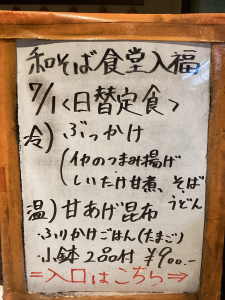 和そば食堂入福
7/1<日替定食>
冷)ぶっかけ
(イカのつまみ揚げ
しいたけ甘煮、そば
うどん
温)甘あげ昆布
ふりかけごはん(たまご)
小鉢2品付 ¥900.-
⇒入口はこちら⇒